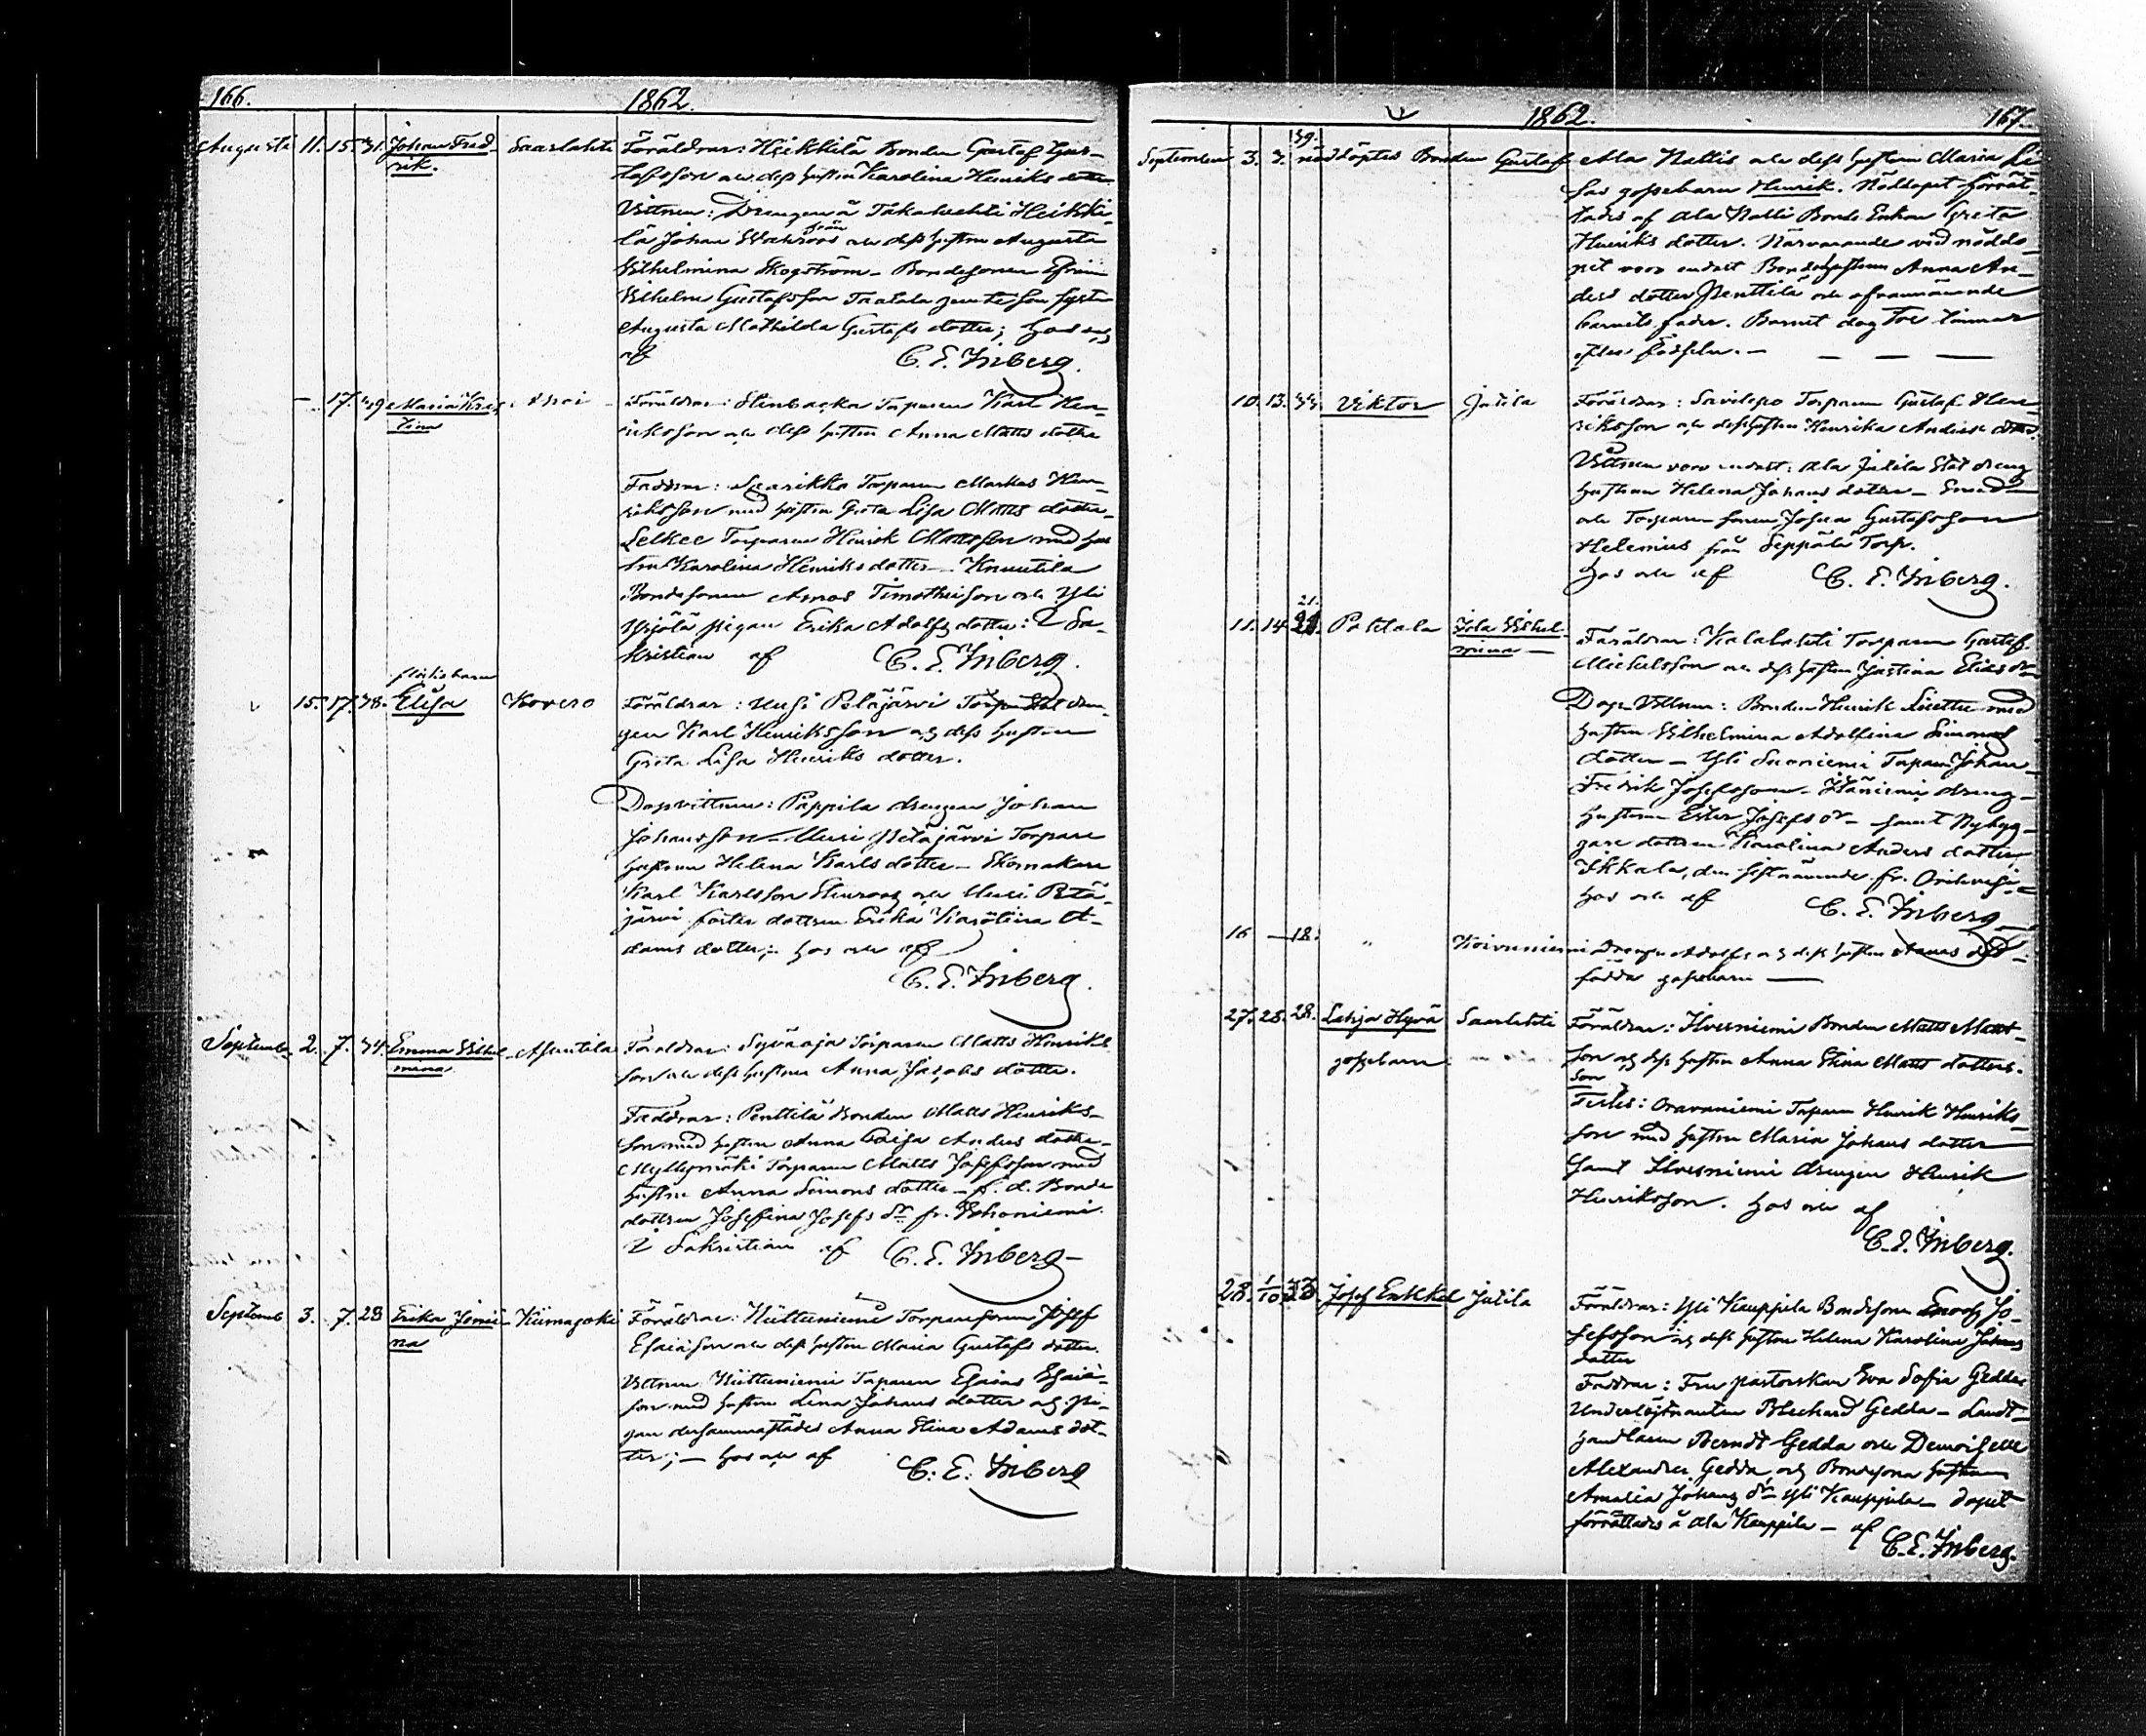 166. 1862.
Augusti 11. 15. 31. Johan Fred- Saarlahti Föräldrar: Heikkilä Bonden Gustaf Gus-
rik. tafsson och dess hustru Karolina Henriks dotter
Vittnen: Drengen å Takalahti Heikki-
lä Johan och dess hustru Augusta
från
Wilhelmina Skogström - Bondesonen Efraim
Wilhelm Gustafsson Taatala jemte hans syster
Augusta Mathilda Gustafs dotter; hos och
af C. E. Inberg.
17. Maria Kris- Föräldrar: Stenbacka Torparen Karl Hen-
tina riksson och dess hustru Anna Matts dotter
Faddrar: Saarikko Torparen Markus Hen-
riksson med hustru Greta Lisa Matts dotter-
Selkee Torparen Henrik Mattsson med hus
tru Karolina Henriks dotter - Knuutila
Bondesonen Amos Timotheison och Yli
Yrjölä pigan Erika Adolfs dotter: I Sa-
kristian af C. E. Inberg.
flickebarn
15. 17. 38. Elisa Kovero Föräldrar: Uusi Petäjärvi dren-
gen Karl Henriksson och dess hustru
Greta Lisa Henriks dotter.
Dopvittnen: Pappila drengen Johan
Johansson - Uusi Petäjärvi Torpare
hustrun Helena Karls dotter - Skomakare
Karl Karlsson Stenroos och Uusi Petä-
järvi foster dottren Erika Karolina A-
dams dotter; hos och af
C. E. Inberg.
September 2. 7. 34. Emma Wilhel- Asuntila Föräldrar: Syväoja Torparen Matts Henriks
mina. son och dess hustru Anna Jacobs dotter.
Faddrar: Penttilä Bonden Matts Henriks-
son med hustru Anna Caisa Anders dotter-
Myllymäki Torparen Matts Josefsson med
hustru Anna Simons dotter - f. d. Bonde
dottren Josefina Josefs dr fr.
I Sakristian af C. E. Inberg-
Septemb 3. 7. 28 Erika Jose- Kiimajoki Föräldrar: Hiittuniemi Torparesonen Josef
na Esaiason och dess hustru Maria Gustafs dotter.
Vittnen Hiittuniemi Torparen Esaias Esaia-
son med hustru Lena Johans dotter och pi-
gan dersammastädes Anna Stina Adams dot-
ter; - hos och af C. E. Inberg
1862. 167.
39.
September 3. nöddöptes Bonden Gustaf Ala Nallis och dess hustru Maria Li-
sas gossebarn Henrik. Nöddopet förrät-
tades af Ala Nalli Bonde Enkan Greta
Henriks dotter. Närvarande vid nöddo-
pet voro endast Bondehustrun Anna An-
ders dotter Penttilä och ofvannämnde
barnets fader. Barnet dog tre timmar
efter födseln. -
10. 13. 33. Viktor Jutila Föräldrar: Savilepo Torparen Gustaf Hen-
riksson och dess hustru Henrika Anders dotter.
Vittnen voro endast: Ala Jutila Stat dreng
hustrun Helena Johans dotter -
och Torpare sonen Josua Gustafsson
Helenius från Seppälä Torp.
hos och af C. E. Inberg.
21.
11. 14. Pohtola Ida Wilhel- Föräldrar: Kalalahti Torparen Gustaf
mina Michelsson och dess hustru Justina Elias dr
Dop Vittnen: Bonden Henrik med
hustru Wilhelmina Adolfina Simons
dotter - Yli Suoniemi Torparen Johan
Fredrik Josefsson - dreng-
hustrun Ester Josefs dr - samt Nybyg-
gare dottren Karolina Anders dotter
Ikkala, den sistnämnde fr. Orihvesi
hos och af C. E. Inberg
16 18. " Koivuniemi Drengen Adolfs och dess hustru Annas död-
födda gossebarn
27. 28. 28. Lahja Hyvä Saarlahti Föräldrar: Ilvesniemi Bonden Matts Matts-
gossebarn son och dess hustru Anna Stina Matts dotter.
Testes: Oravaniemi Torparen Henrik Henriks-
son med hustru Maria Johans dotter
samt Ilvesniemi drengen Henrik
Henriksson. hos och af
C. E. Inberg.
28. 1/10 33. Josef Jutila Föräldrar: Yli Kauppila Bondesonen Enoch Jo-
sefsson och dess hustru Helena Karolina Johans
dotter
Faddrar: Fru pastorskan Eva Sofia Gedda
Underlöjtnanten Gedda - Landt-
handlaren Berndt Gedda och Demoiselle
Alexandra Gedda, och Bondesona hustrun
Amalia Johans dr Yli Kauppila - dopet
förrättades å Ala Kauppila - af
C. E. Inberg.